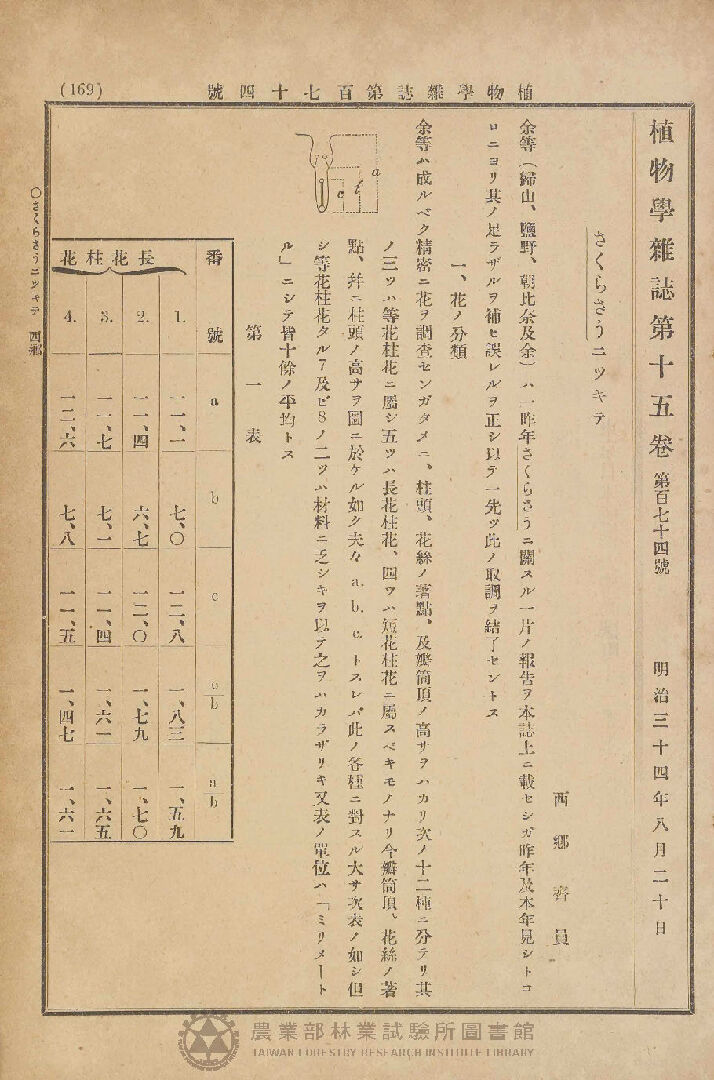 (169)
植物學雜誌第百七十四號
植物學雜誌第十五卷 第百七十四號 明治三十四年八月二十日
さくらさうニツキテ
西鄉
員
余等(歸山、鹽野、朝比奈及余)ハ一昨年さくらさうニ關スル一片ノ報告ヲ本誌上ニ載セシガ昨年及本年見シトコ
ロニヨリ其ノ足ラザルヲ補ヒ誤レルヲ正シ以テ一先ヅ此ノ取調ヲ結了セントス
一、花ノ分類
余等ハ成ルベク精密ニ花ヲ調査センガタメニ、柱頭、花絲ノ著點、及瓣筒頂ノ高サヲハカリ次ノ十二種ニ分テリ其
ノ三ツハ等花柱花ニ屬シ五ツハ長花柱花、四ツハ短花柱花ニ屬スベキモノナリ今瓣筒頂、花絲ノ著
點、幷ニ柱頭ノ高サヲ圖ニ於ケル如ク夫々 a. b. c. トスレバ此ノ各種ニ對スル大サ次表ノ如シ但
シ等花柱花タル7及ビ8ノ二ツハ材料ニ乏シキヲ以テ之ヲハカラザリキ又表ノ單位ハ「ミリメート
ル」ニシテ皆十餘ノ平均トス
a
b
c
第一表
番號 a b c c/b a/b
長花柱花
1. 一一、一 七、〇 一二、八 一、八三 一、五九
2. 一一、四 六、七 一二、〇 一、七九 一、七〇
3. 一一、七 七、一 一一、四 一、六一 一、六五
4. 一二、六 七、八 一一、五 一、四七 一、六一
○さくらさうニツキテ 西鄉
農業部林業試驗所圖書館
TAIWAN FORESTRY RESEARCH INSTITUTE LIBRARY